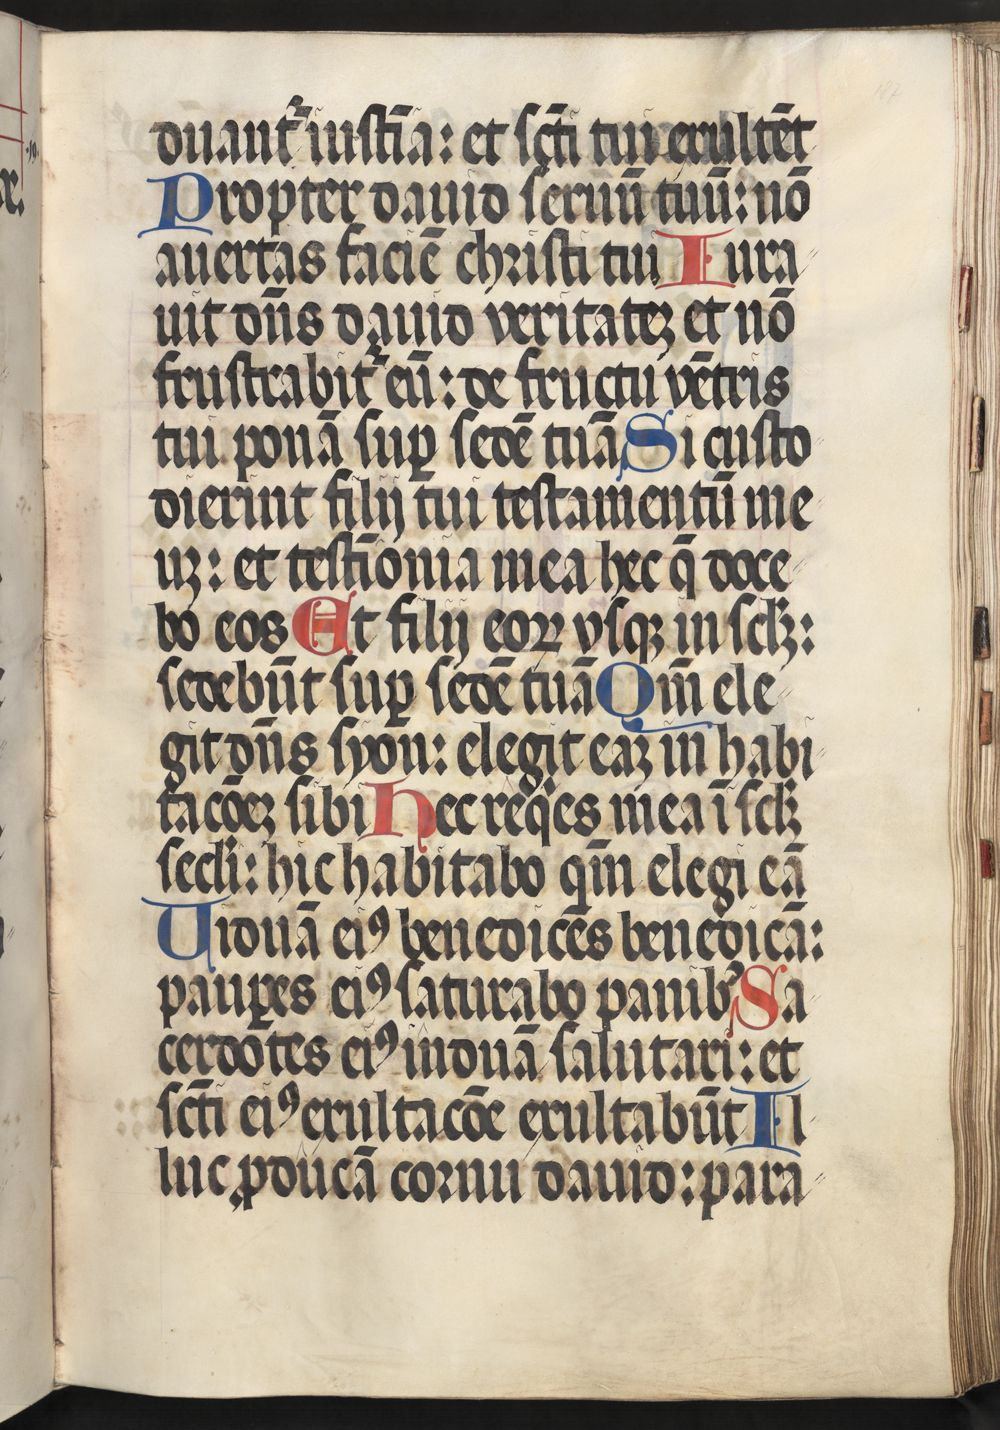 duantᷣ iustīa: et sc̄ti tui exultēt
Propter dauid seruū tuū: nō
auertas faciē christi tui Iura
uit dn̄s dauid veritateꝫ et nō
frustrabitᷣ eū: de fructu vētris
tui ponā suꝑ sedē tuā Si custo
dierint filij tui testamentū me
uꝫ: et testīonia mea hec q̄ doce
bo eos Et filij eoꝝ vsqꝫ in sclꝫ:
sedebūt suꝑ sedē tuā Qm̄ ele
git dn̄s syon: elegit eaꝫ in habi
tacōeꝫ sibi Hec reqͥes mea ī sclꝫ
secli: hic habitabo qm̄ elegi eā
Uiduā eiꝰ benedicēs benedicā:
pauꝑes eiꝰ saturabo panibꝰ Sa
cerdōtes eiꝰ induā salutari: et
sc̄ti eiꝰ exultacōe exultabūt Il
luc ꝓducā cornu dauid: para
187
.19.